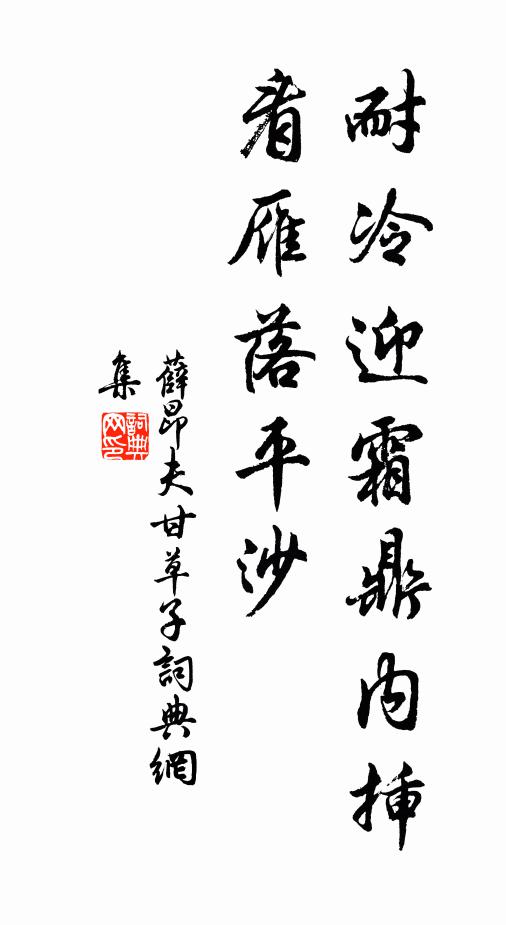 耐冷迎霜鼎内插
看雁落平沙
薛昂夫甘草子詞典網
集
詞典
网印